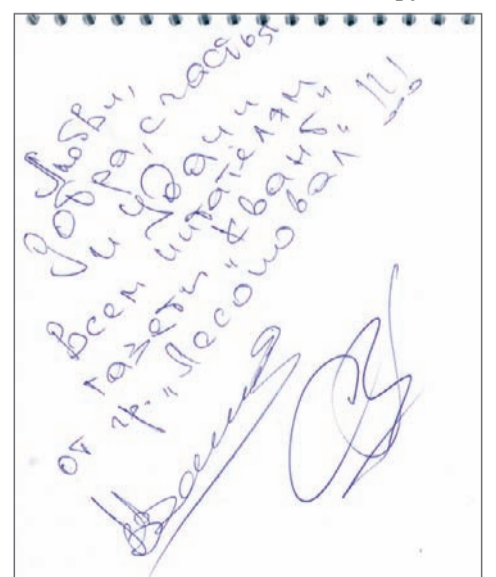 Любви,
добра, счастья
и удачи
Всем читателям
газеты „Квант" !!!
от гр. „Лесоповал"